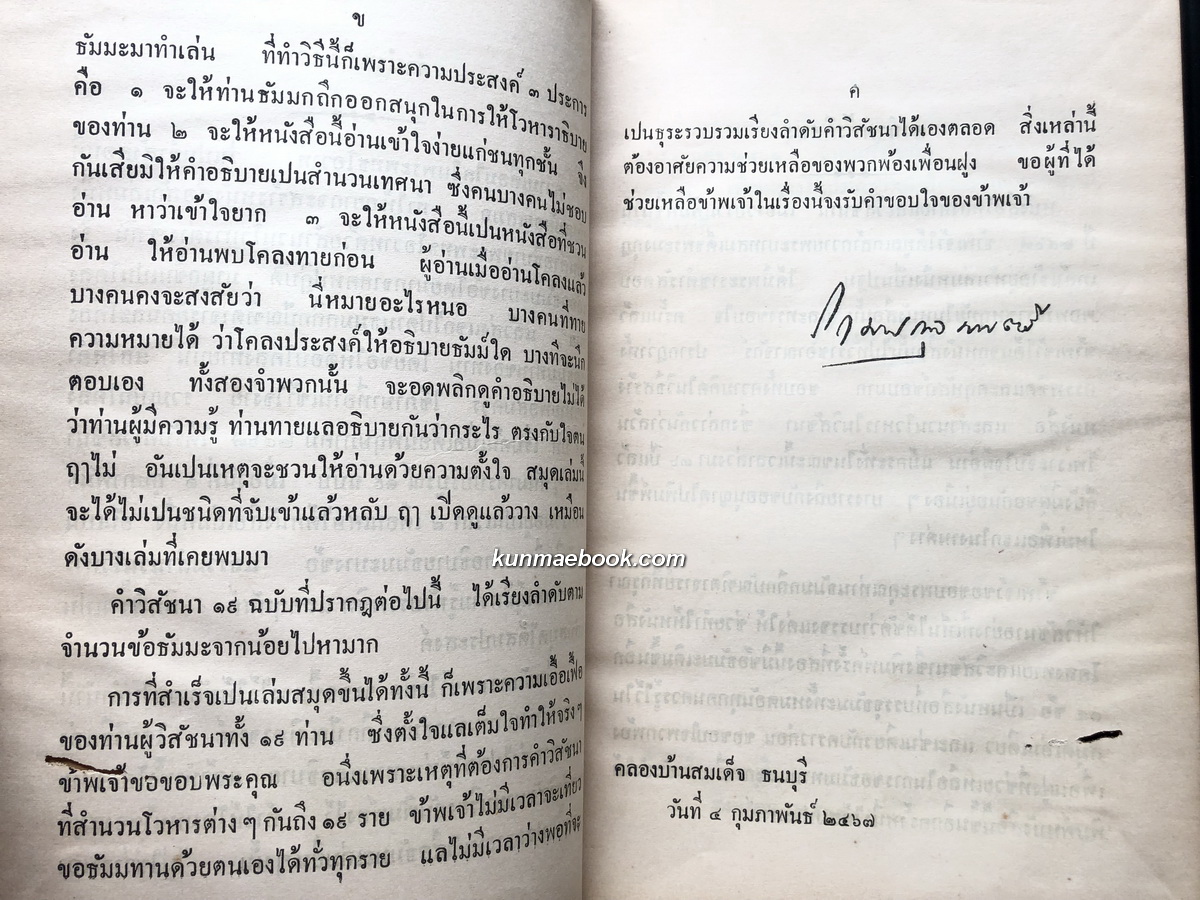 ข
ธัมมะมาทำเล่น ที่ทำวิธีนี้ก็เพราะความประสงค์ ๓ ประการ
คือ ๑ จะให้ท่านธัมมกถึกออกสนุกในการให้โวหาราธิบาย
ของท่าน ๒ จะให้หนังสือนี้อ่านเข้าใจง่ายแก่ชนทุกชั้น จึง
กันเสียมิให้คำอธิบายเปนสำนวนเทศนา ซึ่งคนบางคนไม่ชอบ
อ่าน หาว่าเข้าใจยาก ๓ จะให้หนังสือนี้เปนหนังสือที่ชวน
อ่าน ให้อ่านพบโคลงทายก่อน ผู้อ่านเมื่ออ่านโคลงแล้ว
บางคนคงจะสงสัยว่า นี่หมายอะไรหนอ บางคนที่ทาย
ความหมายได้ ว่าโคลงประสงค์ให้อธิบายธัมม์ใด บางทีจะนึก
ตอบเอง ทั้งสองจำพวกนั้น จะอดพลิกดูคำอธิบายไม่ได้
ว่าท่านผู้มีความรู้ ท่านทายแลอธิบายกันว่ากระไร ตรงกับใจตน
ฤๅไม่ อันเปนเหตุจะชวนให้อ่านด้วยความตั้งใจ สมุดเล่มนี้
จะได้ไม่เปนชนิดที่จับเข้าแล้วหลับ ฤๅ เปิดดูแล้ววาง เหมือน
ดังบางเล่มที่เคยพบมา
คำวิสัชนา ๑๙ ฉบับที่ปรากฎต่อไปนี้ ได้เรียงลำดับตาม
จำนวนข้อธัมมะจากน้อยไปหามาก
การที่สำเร็จเปนเล่มสมุดขึ้นได้ทั้งนี้ ก็เพราะความเอื้อเฟื้อ
ของท่านผู้วิสัชนาทั้ง ๑๙ ท่าน ซึ่งตั้งใจแลเต็มใจทำให้จริง ๆ
ข้าพเจ้าขอขอบพระคุณ อนึ่งเพราะเหตุที่ต้องการคำวิสัชนา
ที่สำนวนโวหารต่าง ๆ กันถึง ๑๙ ราย ข้าพเจ้าไม่มีเวลาจะเที่ยว
ขอธัมมทานด้วยตนเองได้ทั่วทุกราย แลไม่มีเวลาว่างพอที่จะ
ค
เปนธุระรวบรวมเรียงลำดับคำวิสัชนาได้เองตลอด สิ่งเหล่านี้
ต้องอาศัยความช่วยเหลือของพวกพ้องเพื่อนฝูง ขอผู้ที่ได้
ช่วยเหลือข้าพเจ้าในเรื่องนี้จงรับคำขอบใจของข้าพเจ้า
คลองบ้านสมเด็จ ธนบุรี
วันที่ ๔ กุมภาพันธ์ ๒๔๖๗
kunmaebook.com